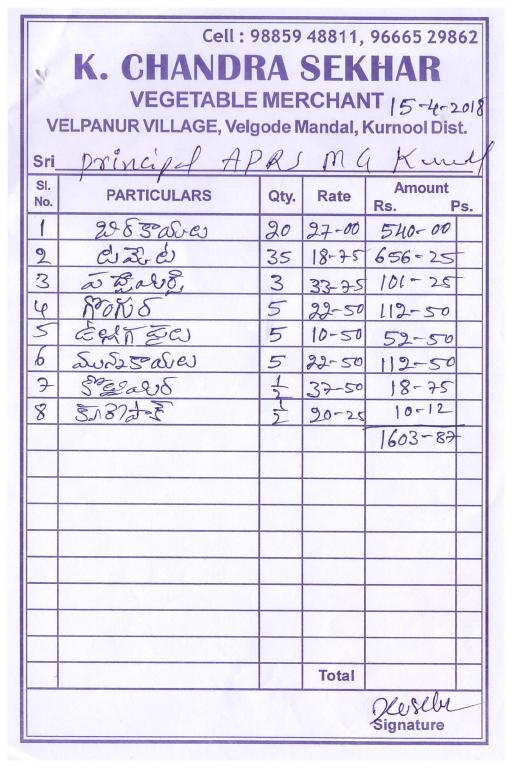 Cell : 98859 48811, 96665 29862
K. CHANDRA SEKHAR
VEGETABLE MERCHANT 15-4-2018
VELPANUR VILLAGE, Velgode Mandal, Kurnool Dist.
Sri Principal APRS M G
Sl. No. PARTICULARS Qty. Rate Amount Rs. Ps.
1 బీరకాయలు 20 27-00 540-00
2 టమోట 35 18-75 656-25
3 3 33-75 101-25
4 గోంగూర 5 22-50 112-50
5 5 10-50 52-50
6 మునకాయలు 5 22-50 112-50
7 1/2 37-50 18-75
8 1/2 20-25 10-12
1603-87
Total
Signature